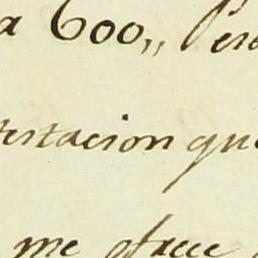 a 600,, Pes
testacion que
me ofrece